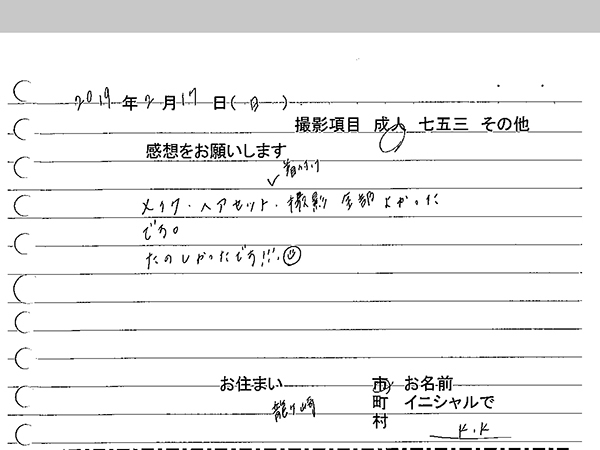 2019年2月17日(日)
撮影項目 成人 七五三 その他
感想をお願いします
着つけ
メイク・ヘアセット・撮影 全部よかった
です。
たのしかったです!!!
お住まい 市 お名前
龍ケ崎 町 イニシャルで
村 K.K